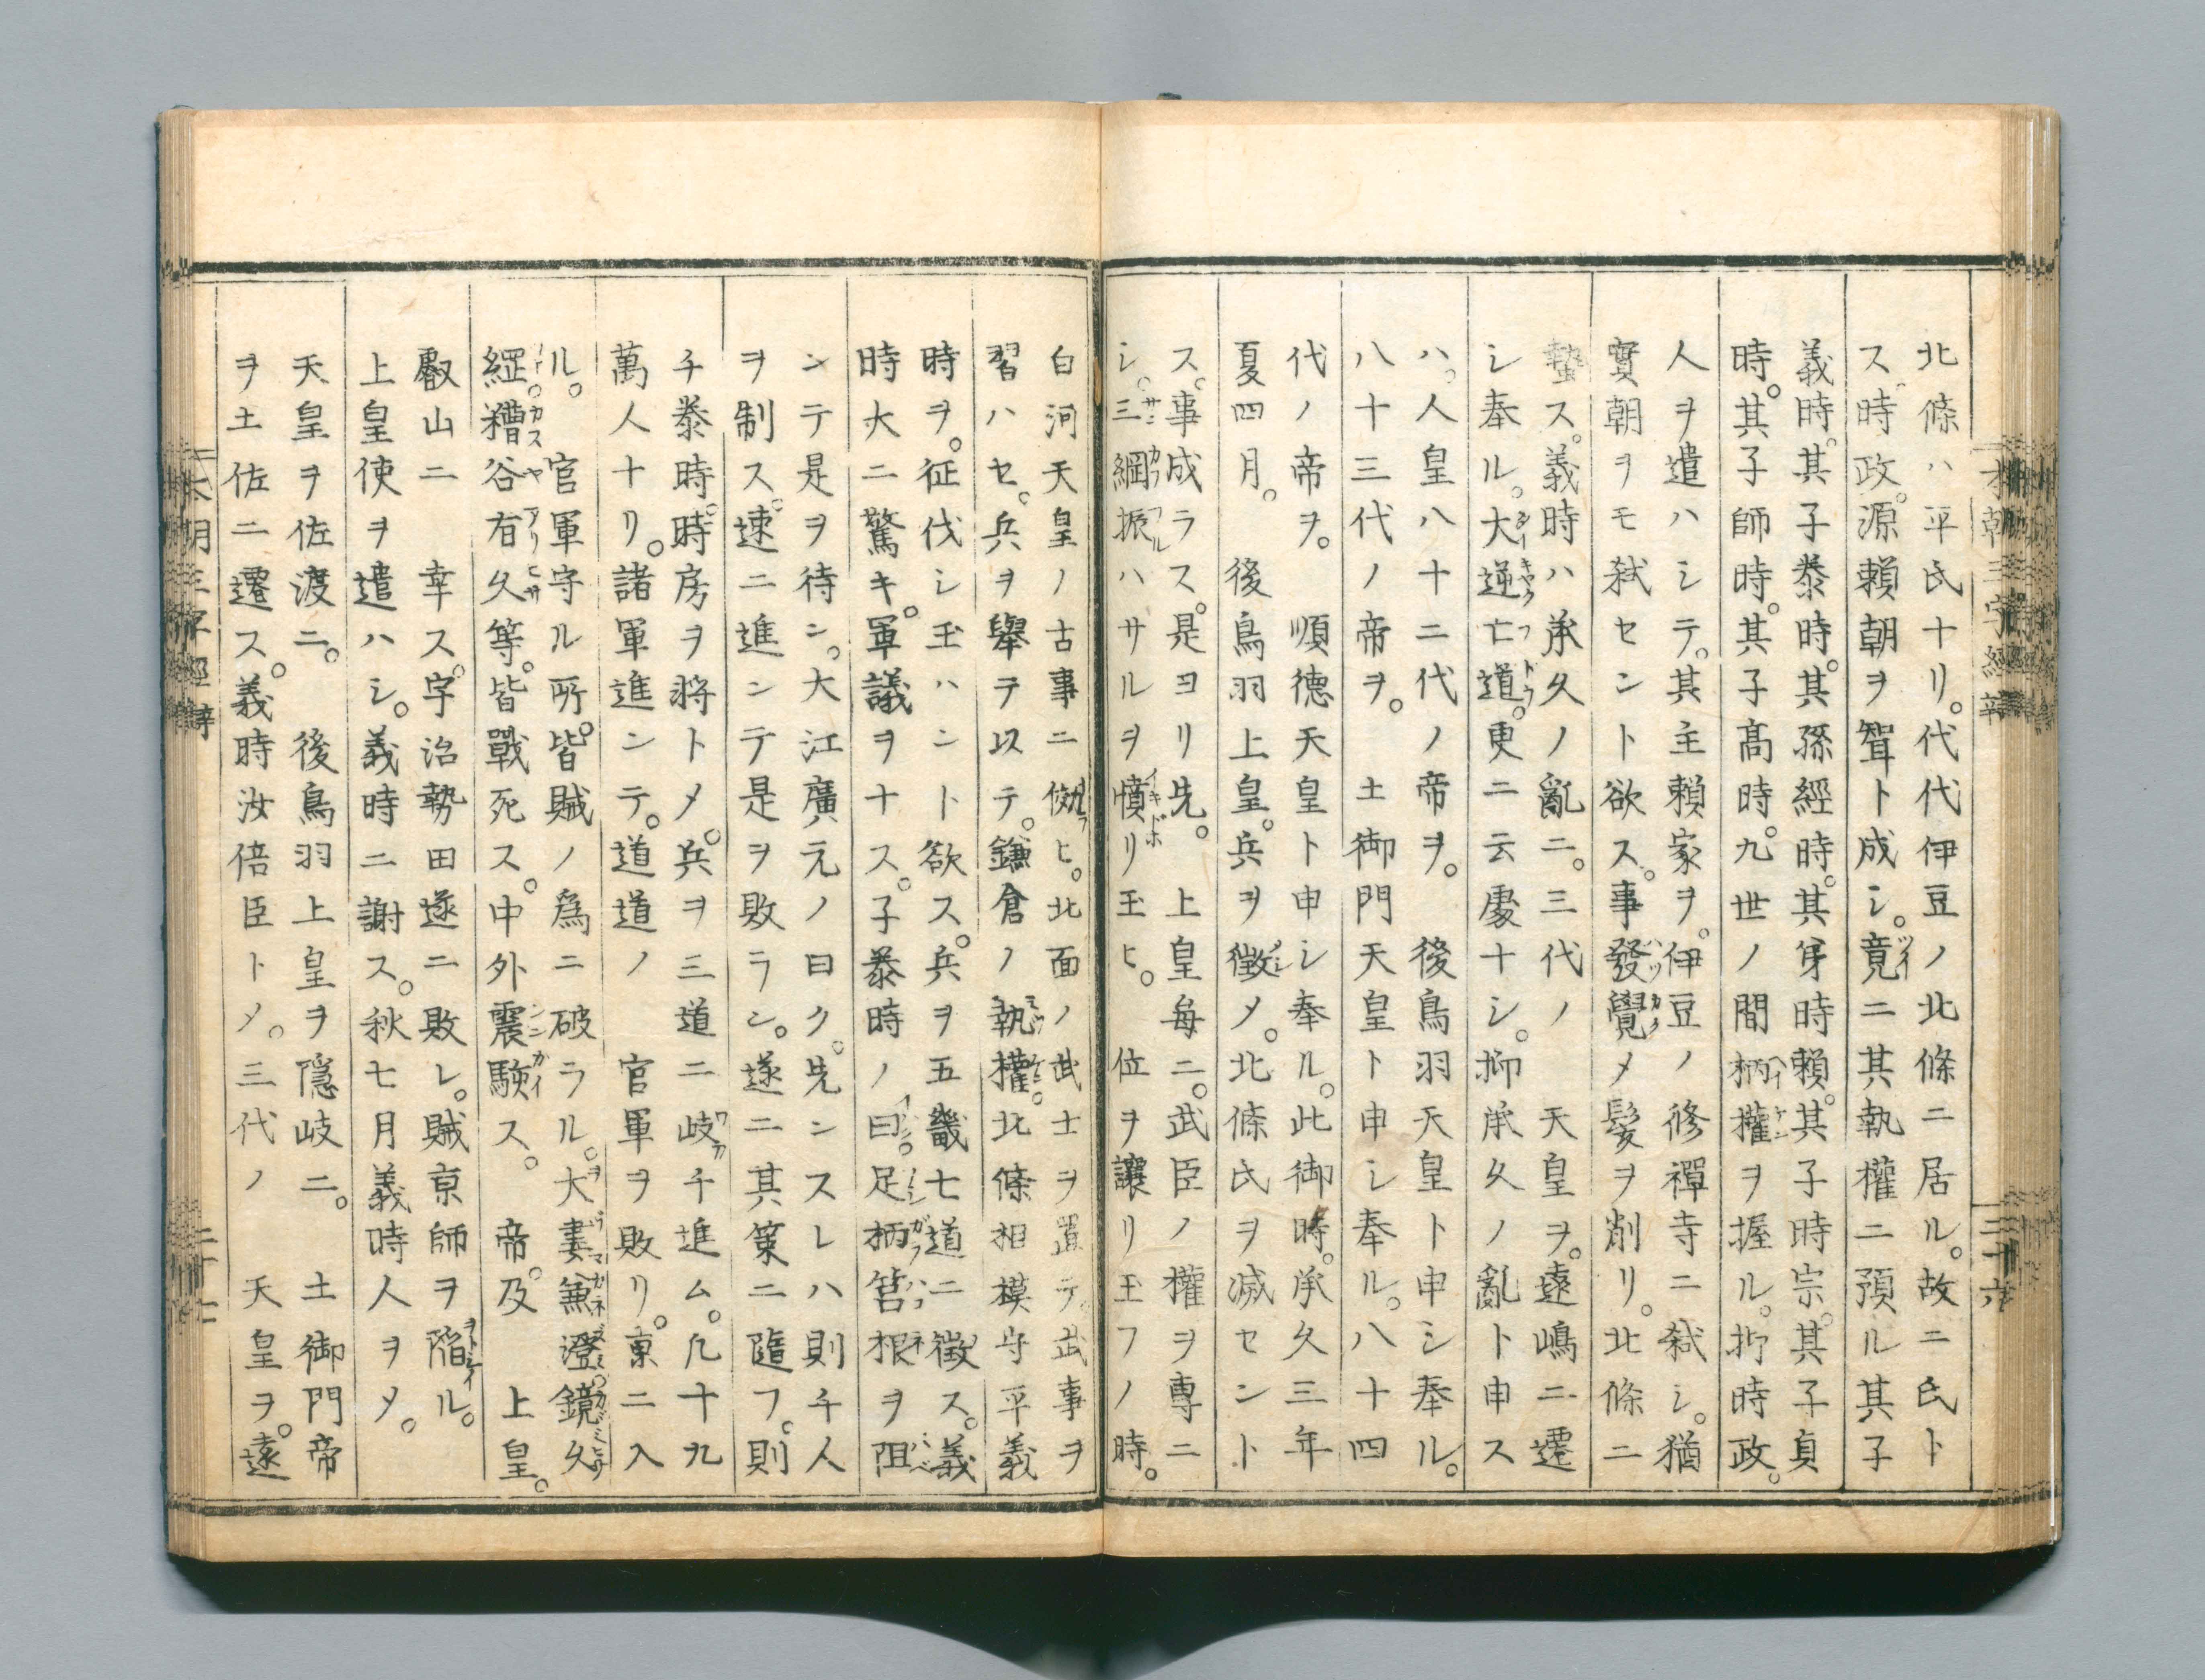 北條ハ平氏ナリ。代代伊豆ノ北條ニ居ル。故ニ氏ト
ス。時政。源賴朝ヲ聟ト成シ。竟ニ其執權ニ預ル其子
義時。其子泰時。其孫經時。其身時賴。其子時宗。其子貞
時。其子師時。其子高時。九世ノ間柄權ヲ握ル。抑時政。
人ヲ遣ハシテ。其主賴家ヲ。伊豆ノ修禪寺ニ弑シ。猶
實朝ヲモ弑セント欲ス。事發覺メ髮ヲ削リ。北條ニ
蟄ス。義時ハ承久ノ亂ニ。三代ノ　天皇ヲ。遠嶋ニ遷
シ奉ル。大逆亡道。更ニ云處ナシ。抑承久ノ亂ト申ス
ハ。人皇八十二代ノ帝ヲ。　後鳥羽天皇ト申シ奉ル。
八十三代ノ帝ヲ。　土御門天皇ト申シ奉ル。八十四
代ノ帝ヲ。　順德天皇ト申シ奉ル。此御時。承久三年
夏四月。　後鳥羽上皇。兵ヲ徴メ。北條氏ヲ滅セント
ス。事成ラス。是ヨリ先。　上皇毎ニ。武臣ノ權ヲ專ニ
シ。三綱振ハサルヲ憤リ玉ヒ。　位ヲ讓リ玉フノ時。
白河天皇ノ古事ニ倣ヒ。北面ノ武士ヲ置テ。武事ヲ
習ハセ。兵ヲ舉テ以テ。鎌倉ノ執權。北條相模守平義
時ヲ。征伐シ玉ハント欲ス。兵ヲ五畿七道ニ徴ス。義
時大ニ驚キ。軍議ヲナス。子泰時ノ曰。足柄筥根ヲ阻
ンテ是ヲ待ン。大江廣元ノ曰ク。先ンスレハ則チ人
ヲ制ス。速ニ進ンテ是ヲ敗ラン。遂ニ其策ニ隨フ。則
チ泰時。時房ヲ將トメ。兵ヲ三道ニ岐チ進ム。凡十九
萬人ナリ。諸軍進ンテ。道道ノ　官軍ヲ敗リ。東ニ入
ル。　官軍守ル所。皆賊ノ爲ニ破ラル。大妻兼澄鏡久
經。糟谷有久等。皆戰死ス。中外震駭ス。　帝。及　上皇。
叡山ニ　幸ス。宇治勢田遂ニ敗レ。賊京師ヲ陷ル。
上皇使ヲ遣ハシ。義時ニ謝ス。秋七月義時人ヲメ。
天皇ヲ佐渡ニ。　後鳥羽上皇ヲ隱岐ニ。　土御門帝
ヲ土佐ニ遷ス。義時汝倍臣トメ。三代ノ　天皇ヲ。遠